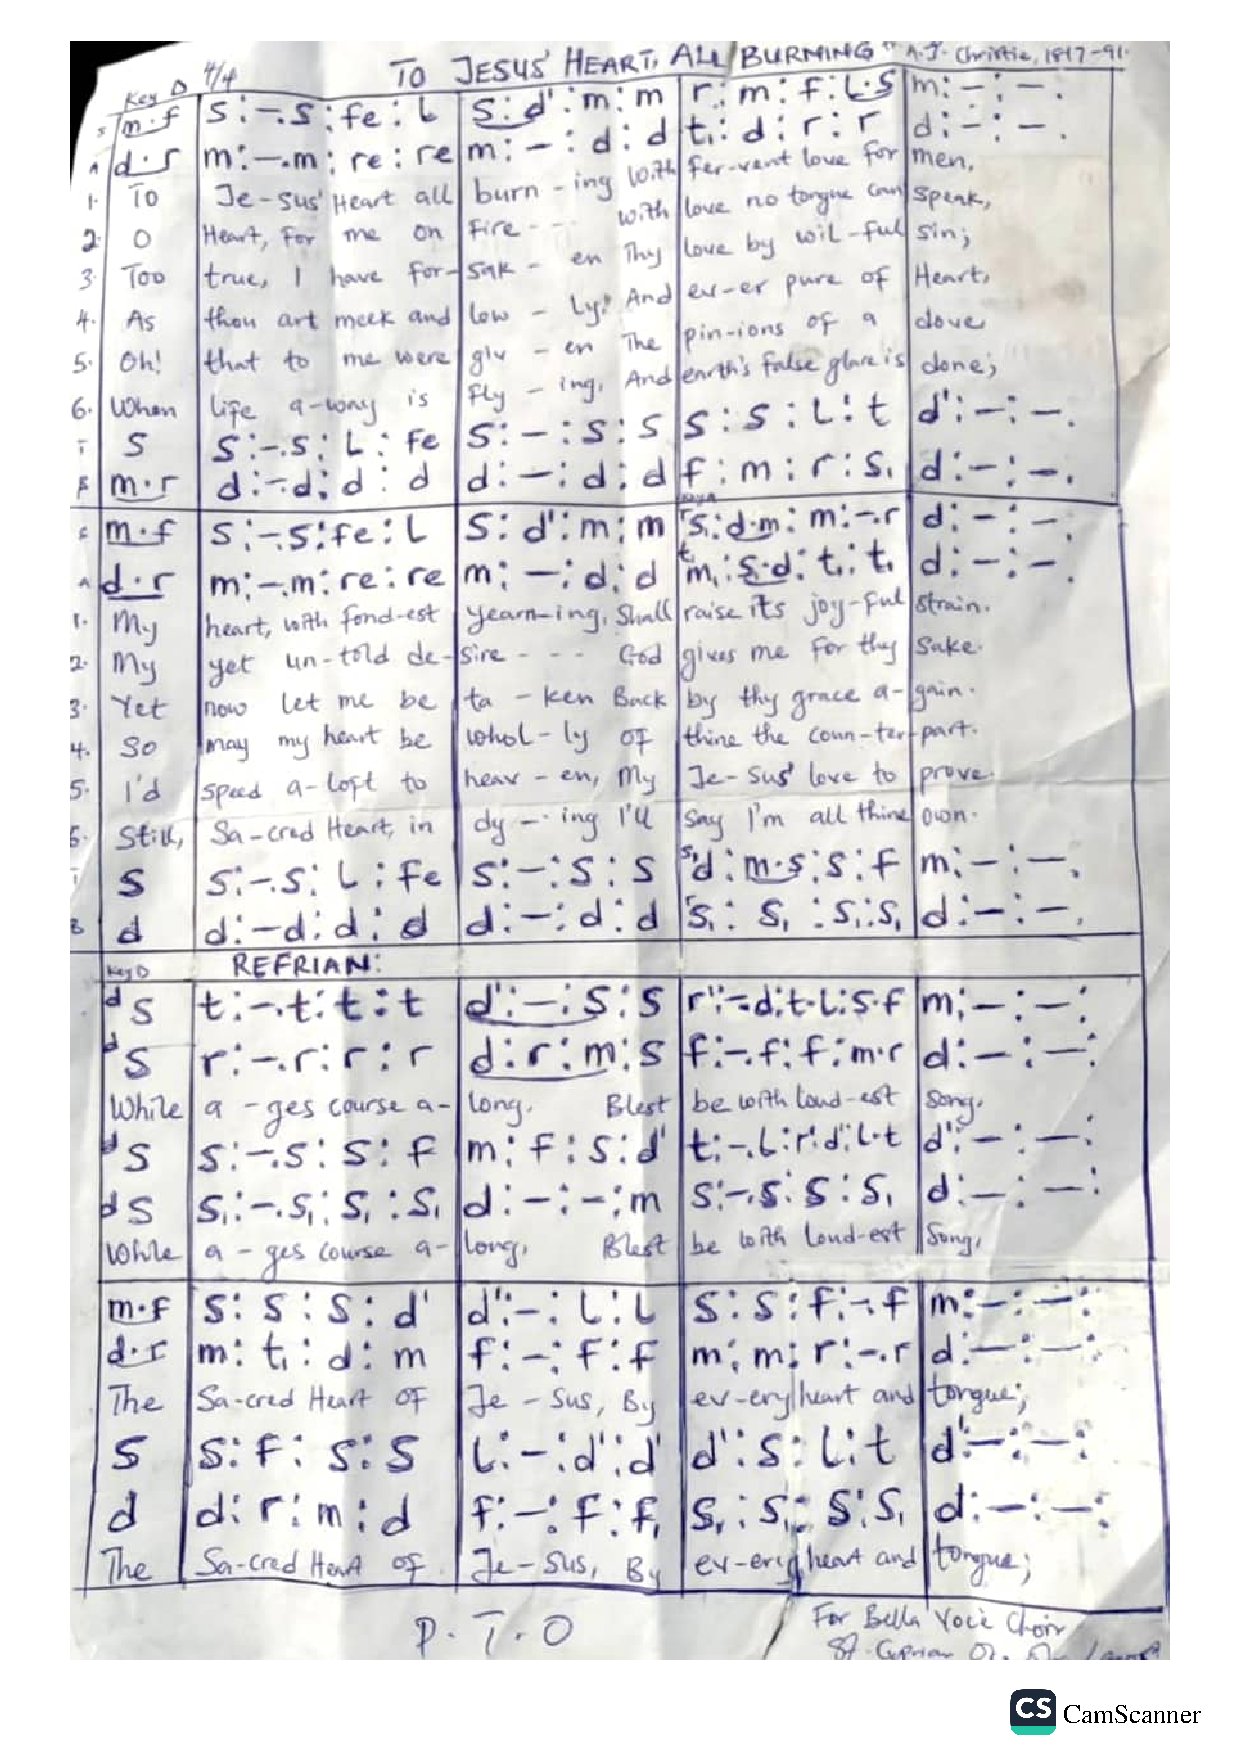 TO JESUS' HEART, ALL BURNING" A.J. Christie, 1817-91.
Key D 4/4
S m.f s:-.s:fe:l s:d':m:m r:m:f:l.s m:-:-.
A d.r m:-.m:re:re m:-:d:d t,:d:r:r d:-:-.
1. To Je-sus' Heart all burn-ing With fer-vent love for men,
2. O Heart, For me on Fire - - - with love no tongue can speak,
3. Too true, I have for-sak-en Thy love by wil-ful sin;
4. As thou art meek and low-ly, And ev-er pure of Heart,
5. Oh! that to me were giv-en The pin-ions of a dove
6. When life a-way is fly-ing, And earth's false glare is done;
T s s:-.s:l:fe s:-:s:s s:s:l:t d':-:-.
B m.r d:-.d:d:d d:-:d:d f:m:r:s, d:-:-.
S m.f s:-.s:fe:l s:d':m:m s,:d.m:m:-.r d:-:-.
A d.r m:-.m:re:re m:-:d:d m,:s,.d:t,:t, d:-:-.
1. My heart, with fond-est yearn-ing, Shall raise its joy-ful strain.
2. My yet un-told de-sire - - - God gives me For thy Sake.
3. Yet now let me be ta-ken Back by thy grace a-gain.
4. So may my heart be whol-ly Of thine the coun-ter-part.
5. I'd speed a-loft to heav-en, My Je-sus' love to prove.
6. Still, Sa-cred Heart, in dy-ing I'll Say I'm all thine own.
T s s:-.s:l:fe s:-:s:s d:m.s:s:f m:-:-.
B d d:-d:d:d d:-:d:d s,:s,:s,:s, d:-:-.
Key D REFRIAN:
d s t:-.t:t:t d':-:s:s r':-d:t.l:s.f m:-:-:
d s r:-.r:r:r d:r:m:s f:-.f:f:m.r d:-:-:
While a-ges course a-long. Blest be with loud-est Song.
d s s:-.s:s:f m:f:s:d' t:-.l:r'.d':l.t d':-:-:
d s s,:-.s,:s,:s, d:-:-:m s:-.s:s:s, d:-:-:
While a-ges course a-long, Blest be with loud-est Song,
m.f s:s:s:d' d':-:l:l s:s:f:-.f m:-:-:
d.r m:t,:d:m f:-:f:f m:m:r:-.r d:-:-:
The Sa-cred Heart OF Je-sus, By ev-ery heart and tongue;
s s:f:s:s l:-:d':d' d':s:l:t d':-:-:
d d:r:m:d f:-:f:f, s,:s,:s:s, d:-:-:
The Sa-cred Heart of Je-sus, By ev-ery heart and tongue;
P.T.O
For Bella Voce Choir
St. Cyprian
CS CamScanner